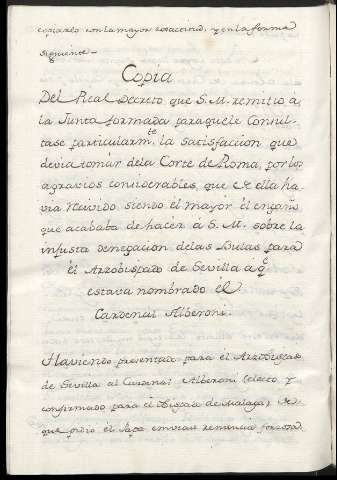 copiarlo con la mayor exactitud, y en la forma
siguiente =
Copia
Del Real Decreto que S. M. remitio á
la Junta formada para que le Consul-
tase particularmte la Satisfaccion que
devia tomár dela Corte de Roma, por los
agravios considerables, que de ella ha-
via recivido siendo el mayór el engaño
que acababa de hacér á S. M. sobre la
injusta denegacion delas Bulas para
él Arzobispado de Sevilla á q.e
estava nombrado el
Cardenal Alberoni.
Haviendo presentado para el Arzobispado
de Sevilla al Cardenal Alberoni (electo y
confirmado para el Obispado de Malaga) de
que pidio el Papa renuncia forzosa